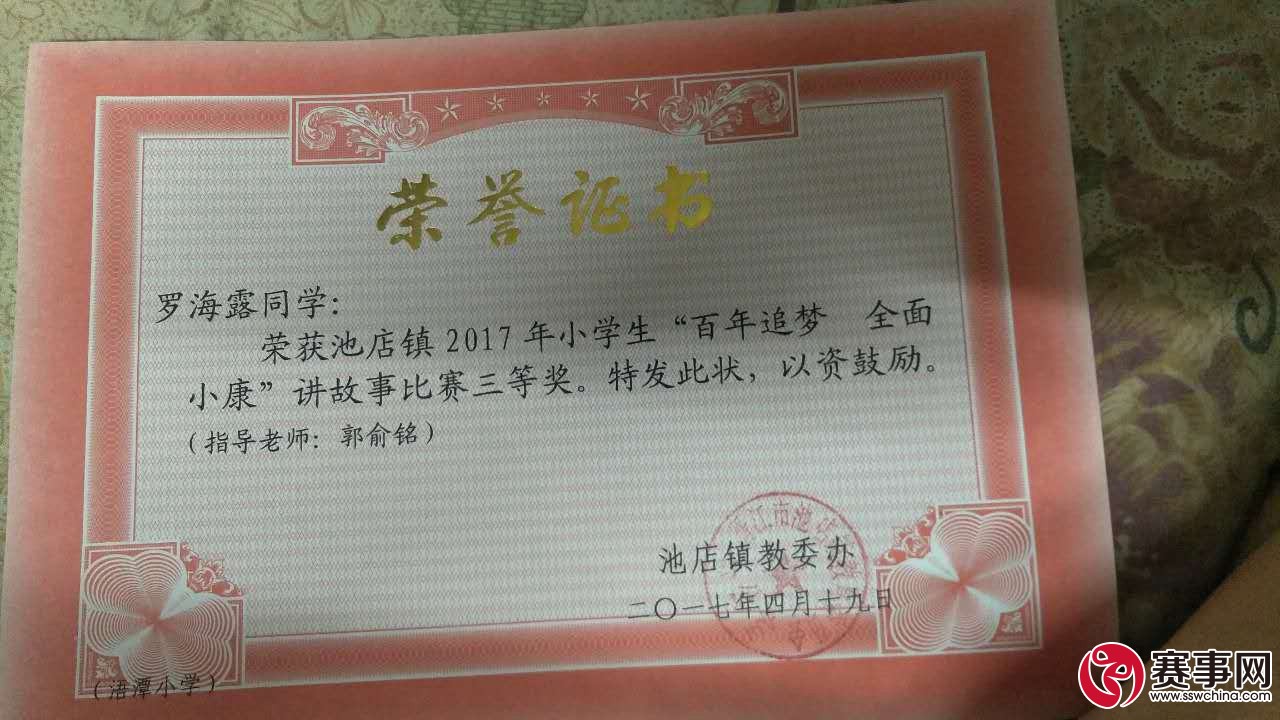 荣誉证书
罗海露同学：
荣获池店镇2017年小学生“百年追梦 全面
小康”讲故事比赛三等奖。特发此状，以资鼓励。
（指导老师：郭俞铭）
江市池
池店镇教委办
二〇一七年四月十九日
（浯潭小学）
赛事网
www.sswchina.com